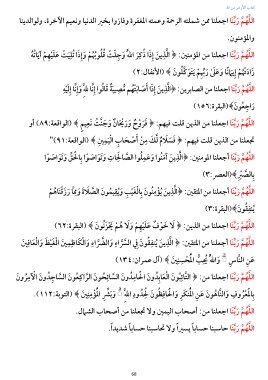 اللَّهُمَّ رَبَّنَا اجعلنا ممن شملته الرحمة وعمته المغفرة وفازوا بخير الدنيا ونعيم الآخرة، ولوالدينا
والمؤمنون.
اللَّهُمَّ رَبَّنَا اجعلنا من المؤمنين: ﴿ الَّذِينَ إِذَا ذُكِرَ اللَّهُ وَجِلَتْ قُلُوبُهُمْ وَإِذَا تُلِيَتْ عَلَيْهِمْ آيَاتُهُ
زَادَتْهُمْ إِيمَانًا وَعَلَىٰ رَبِّهِمْ يَتَوَكَّلُونَ ﴾ (الأنفال:٢)
اللَّهُمَّ رَبَّنَا اجعلنا من الصابرين: ﴿الَّذِينَ إِذَا أَصَابَتْهُم مُّصِيبَةٌ قَالُوا إِنَّا لِلَّهِ وَإِنَّا إِلَيْهِ
رَاجِعُونَ﴾ (البقرة:١٥٦)
اللَّهُمَّ رَبَّنَا اجعلنا من الذين قلت فيهم: ﴿ فَرَوْحٌ وَرَيْحَانٌ وَجَنَّتُ نَعِيمٍ ﴾ (الواقعة:٨٩) أو
تجعلنا من الذين قلت فيهم: ﴿ فَسَلَامٌ لَّكَ مِنْ أَصْحَابِ الْيَمِينِ ﴾ (الواقعة:٩١)"
اللَّهُمَّ رَبَّنَا اجعلنا المؤمنين: ﴿الَّذِينَ آمَنُوا وَعَمِلُوا الصَّالِحَاتِ وَتَوَاصَوْا بِالْحَقِّ وَتَوَاصَوْا
بِالصَّبْرِ﴾(العصر:٣)
اللَّهُمَّ رَبَّنَا اجعلنا من المتقين: ﴿الَّذِينَ يُؤْمِنُونَ بِالْغَيْبِ وَيُقِيمُونَ الصَّلَاةَ وَمِمَّا رَزَقْنَاهُمْ
يُنفِقُونَ﴾(البقرة:٣)
اللَّهُمَّ رَبَّنَا اجعلنا من الذين: ﴿ لَا خَوْفٌ عَلَيْهِمْ وَلَا هُمْ يَحْزَنُونَ ﴾ (البقرة:٦٢)
اللَّهُمَّ رَبَّنَا اجعلنا من المتقين: ﴿ الَّذِينَ يُنفِقُونَ فِي السَّرَّاءِ وَالضَّرَّاءِ وَالْكَاظِمِينَ الْغَيْظَ وَالْعَافِينَ
عَنِ النَّاسِ ۗ وَاللَّهُ يُحِبُّ الْمُحْسِنِينَ ﴾ (آل عمران:١٣٤)
اللَّهُمَّ رَبَّنَا اجعلنا من: ﴿ التَّائِبُونَ الْعَابِدُونَ الْحَامِدُونَ السَّائِحُونَ الرَّاكِعُونَ السَّاجِدُونَ الْآمِرُونَ
بِالْمَعْرُوفِ وَالنَّاهُونَ عَنِ الْمُنكَرِ وَالْحَافِظُونَ لِحُدُودِ اللَّهِ ۗ وَبَشِّرِ الْمُؤْمِنِينَ ﴾ (التوبة:١١٢).
اللَّهُمَّ رَبَّنَا اجعلنا من: أصحاب اليمين ولا تجعلنا من أصحاب الشمال.
اللَّهُمَّ رَبَّنَا حاسبنا حساباً يسيراً ولا تحاسبنا حساباً شديداً.